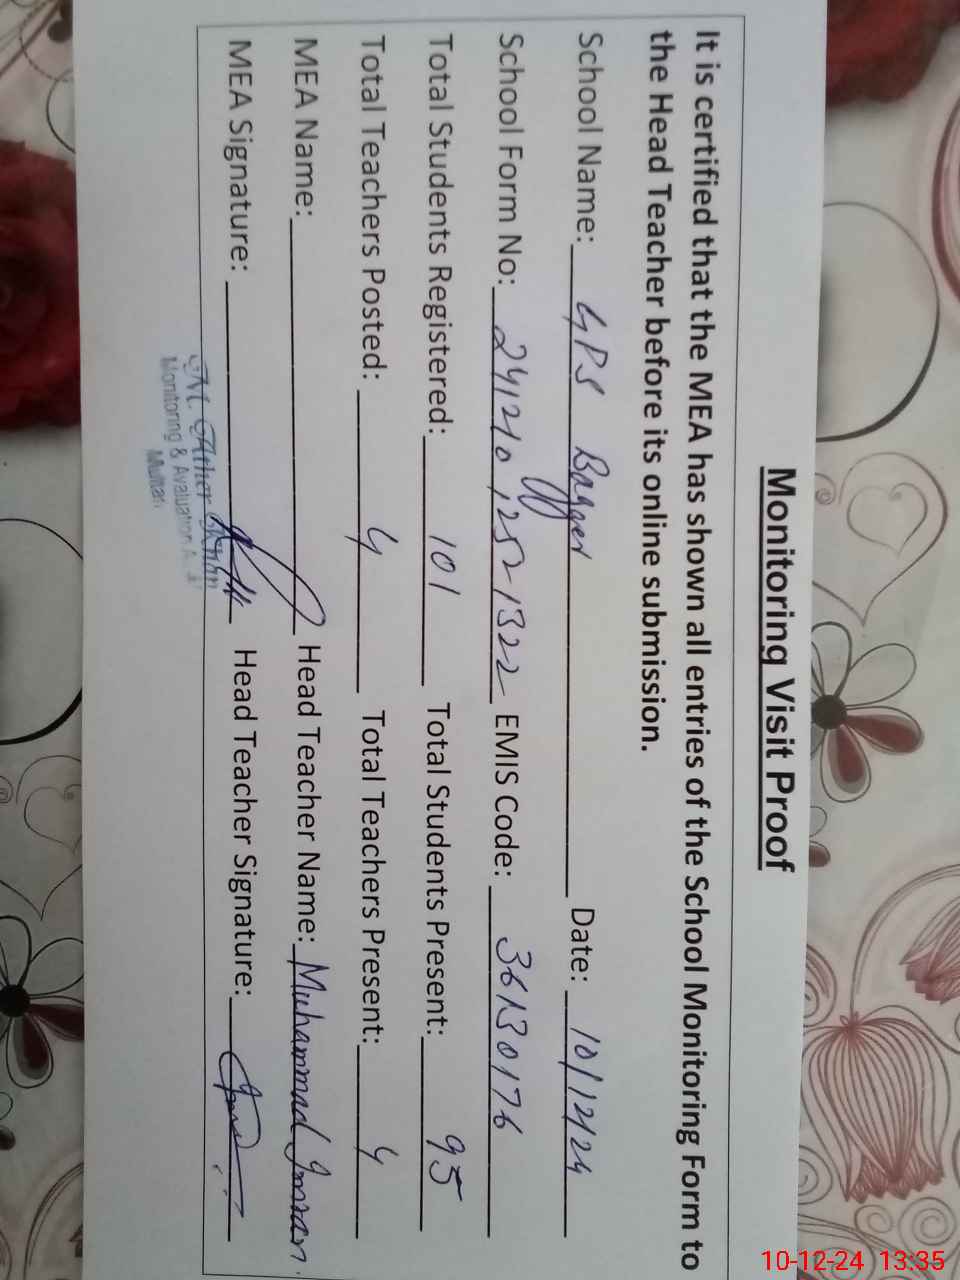 Monitoring Visit Proof
It is certified that the MEA has shown all entries of the School Monitoring Form to
the Head Teacher before its online submission.
School Name: GPS Bagger Date: 10/12/24
School Form No: 241210,252-1322 EMIS Code: 36130176
Total Students Registered: 101 Total Students Present: 95
Total Teachers Posted: 4 Total Teachers Present: 4
MEA Name: Head Teacher Name: Muhammad Imran.
MEA Signature: Head Teacher Signature:
M. Ather
Monitoring & Avaluation
Multan
10-12-24 13:35